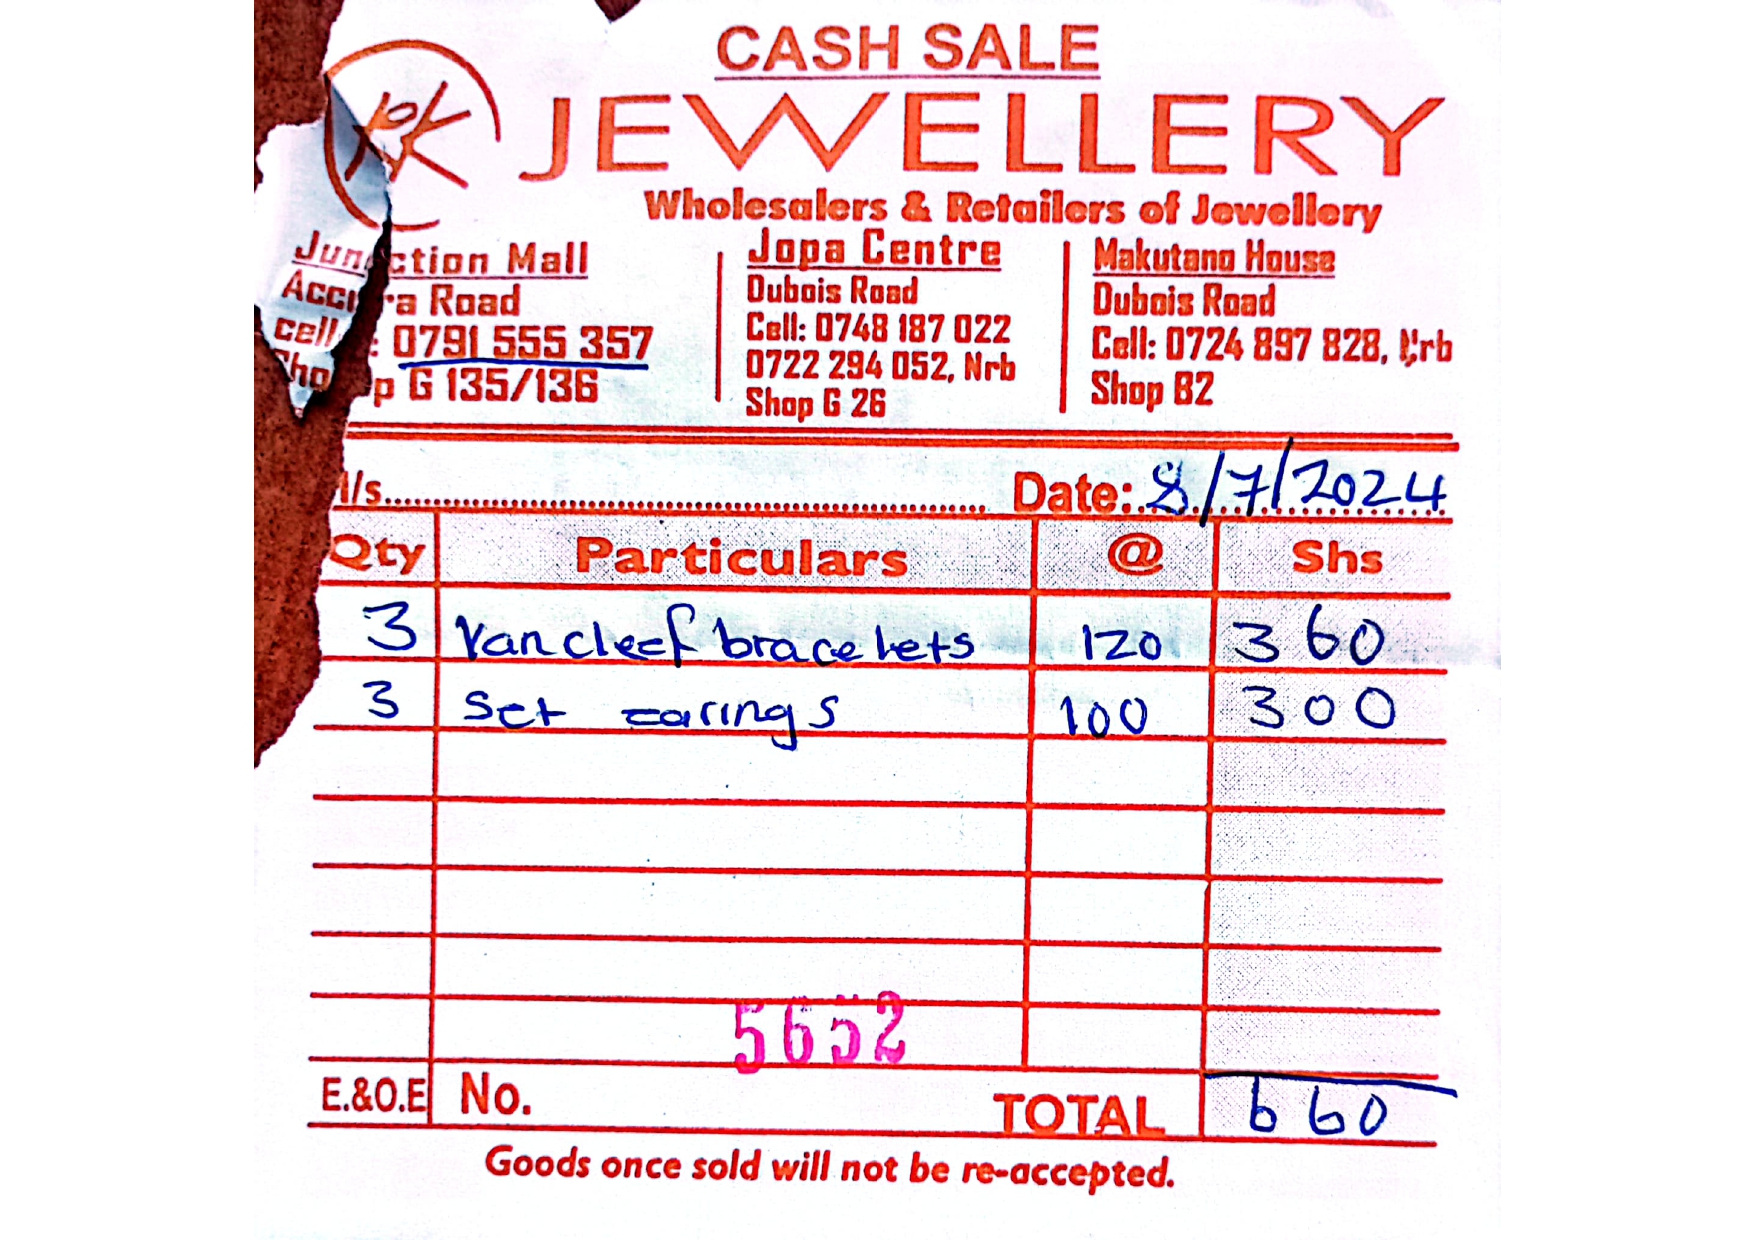 CASH SALE
JEWELLERY
Wholesalers & Retailers of Jewellery
Junction Mall
Accra Road
cell: 0791 555 357
Shop G 135/136
Jopa Centre
Dubois Road
Cell: 0748 187 022
0722 294 052, Nrb
Shop G 26
Makutano House
Dubois Road
Cell: 0724 897 828, Nrb
Shop B2
/s.......... Date: 8/7/2024
Qty Particulars @ Shs
3 Vancleef bracelets 120 360
3 Set earings 100 300
5652
E.&O.E No. TOTAL 660
Goods once sold will not be re-accepted.